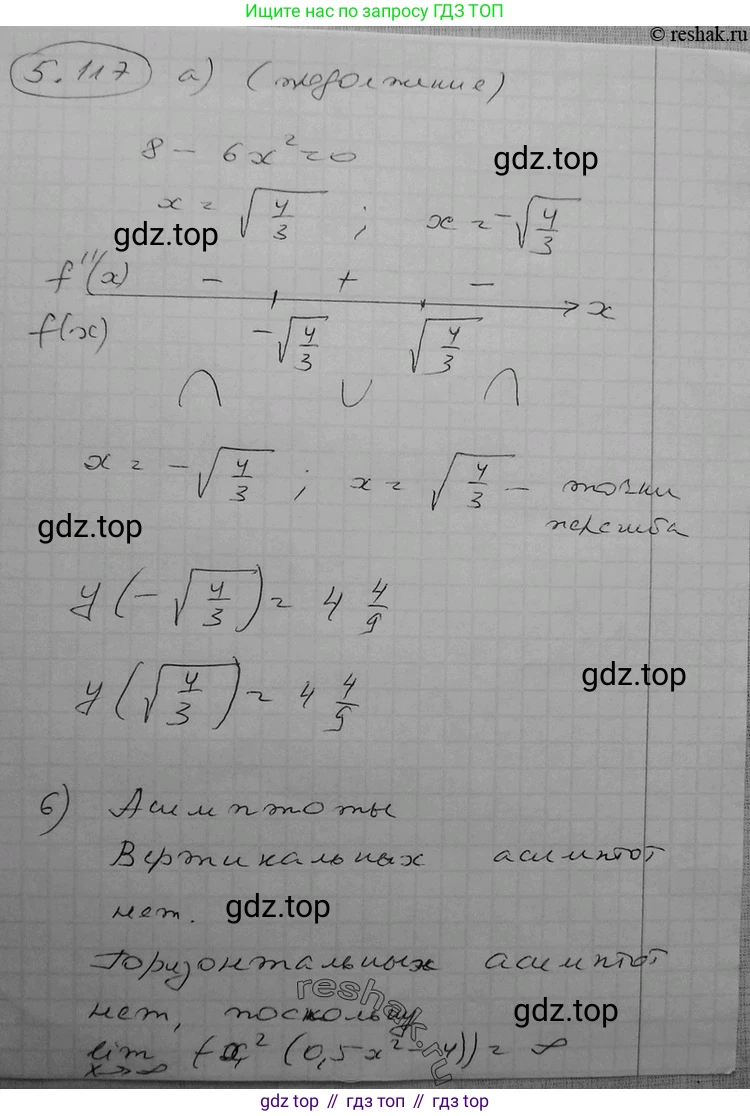 Ищите нас по запросу ГДЗ ТОП
© reshak.ru
5.117 а) (продолжение)
8 - 6x² = 0
gdz.top
x = √(4/3) ; x = -√(4/3)
gdz.top
f''(x) - + - x
f(x) -√(4/3) √(4/3)
∩ ∪ ∩
x = -√(4/3) ; x = √(4/3) - точки
перегиба
gdz.top
y(-√(4/3)) = 4 4/9
y(√(4/3)) = 4 4/9
gdz.top
6) Асимптоты
Вертикальных асимптот
нет.
gdz.top
Горизонтальных асимптот
reshak.ru
нет, поскольку
gdz.top
lim x→∞ (-x² (0,5x² - 4)) = ∞
gdz.top // гдз топ // гдз.top